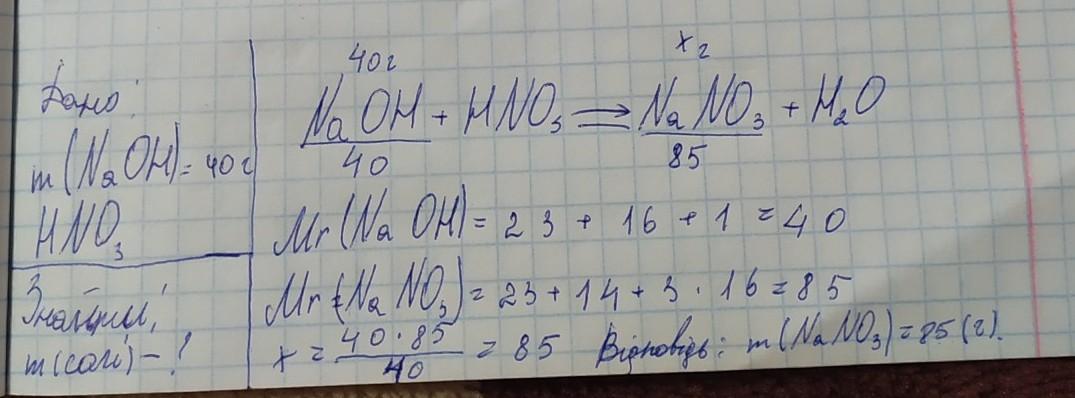 Дано:
m(NaOH)=40г
HNO₃
Знайти:
m(солі)-?
40г
x г
NaOH + HNO₃ ⇒ NaNO₃ + H₂O
40
85
Mr(NaOH)= 23 + 16 + 1 = 40
Mr(NaNO₃)= 23 + 14 + 3 · 16 = 85
x = 40·85/40 = 85 Відповідь: m(NaNO₃)=85(г).